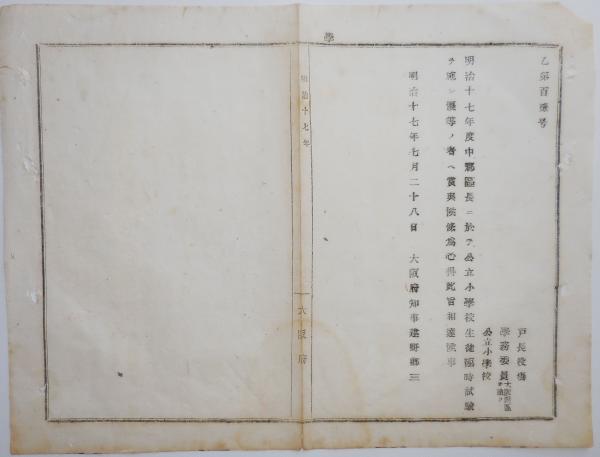 學
乙第百壹号
戸長役塲
學務委員
公立小學校
明治十七年度中郡區長ニ於テ公立小學校生徒臨時試驗
ヲ施シ優等ノ者ヘ賞與候條爲心得此旨相達候事
明治十七年七月二十八日 大阪府知事建野郷三
明治十七年
大阪府